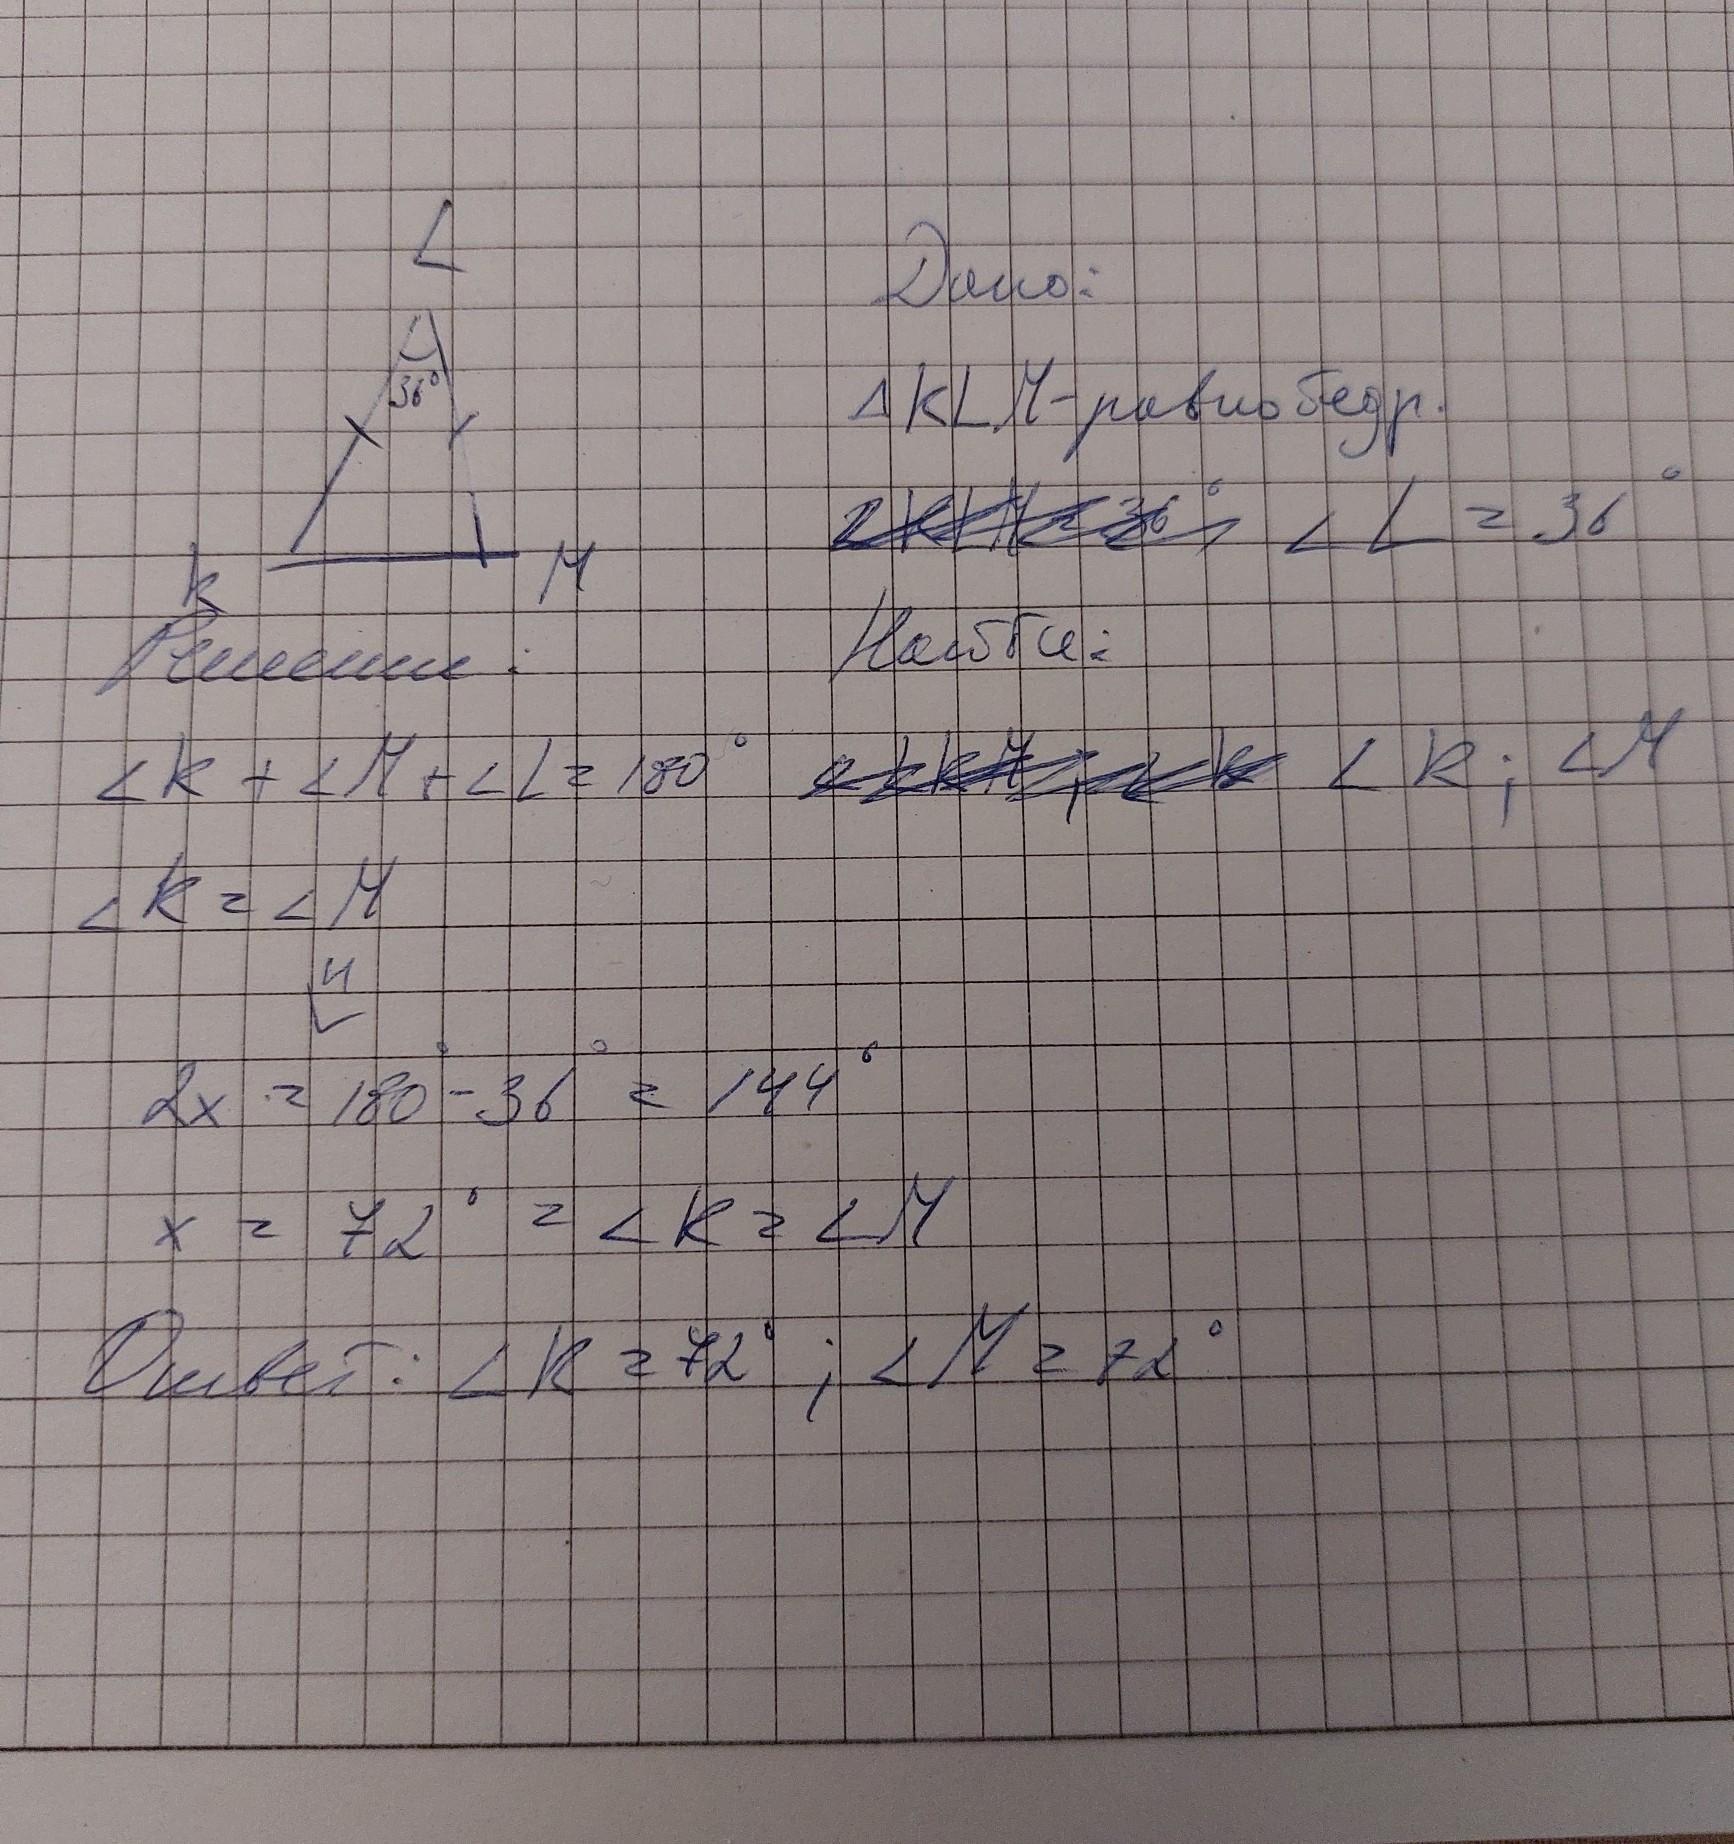 L
36°
K
M
Дано:
ΔKLM-равнобедр.
∠L = 36°
Найти:
∠K; ∠M
Решение:
∠K + ∠M + ∠L = 180°
∠K = ∠M
2x = 180° - 36° = 144°
x = 72° = ∠K = ∠M
Ответ: ∠K = 72°; ∠M = 72°